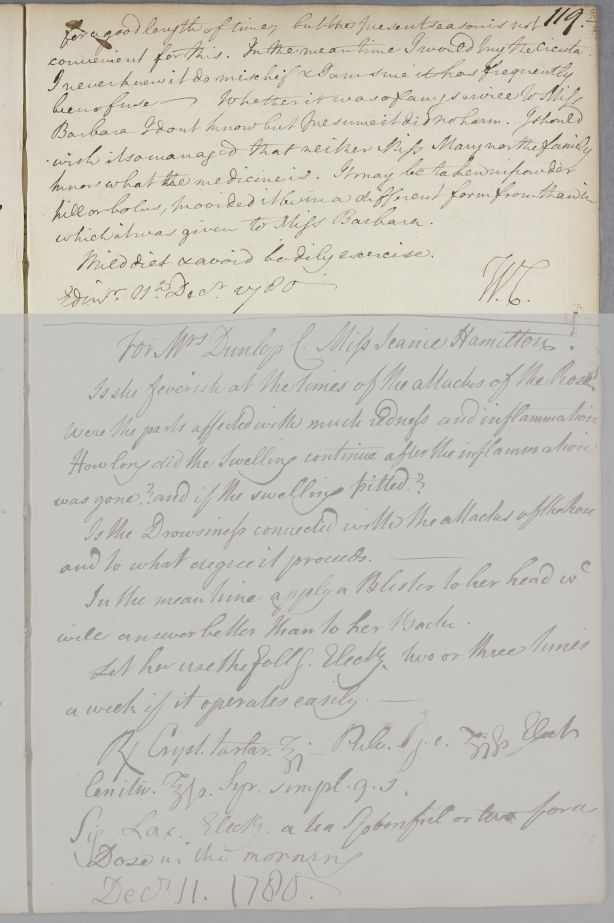 119.
for a good length of time; but the present season is not
convenient for this. In the mean time I would try the Cicuta
I never knew it do mischief & I am sure it has frequently
been of use — Whether it was of any service to Miss
Barbara I dont know but presume it did no harm. I should
wish it so managed that neither Miss Mary nor the family
know what the medicine is. It may be taken in powder
pill or bolus, provided it be in a different form from that in
which it was given to Miss Barbara.
Mild diet & avoid bodily exercise.
Edinr. 11th Decr. 1780 W.C.
For Mrs Dunlop C. Miss Jeanie Hamilton.
Is she feverish at the times of the attacks of the Rose
Were the parts affected with much redness and inflammation
How long did the Swelling continue after the inflammation
was gone? and if the swelling pitted?
Is the Drowsiness connected with the attacks of the Rose
and to what degree it proceeds.
In the mean time apply a Blister to her head wc
will answer better than to her Back.
Let her use the follg. Electy. two or three times
a week if it operates easily —
℞ Cryst. tartar. ℥j — Pulv. ℥jſs Elect
Lenitiv. ℥ſs. Syr. simpl. q. s.
Sig. Lax. Electy. a tea Spoonful or two for a
Dose in the morning
Decr 11. 1780.